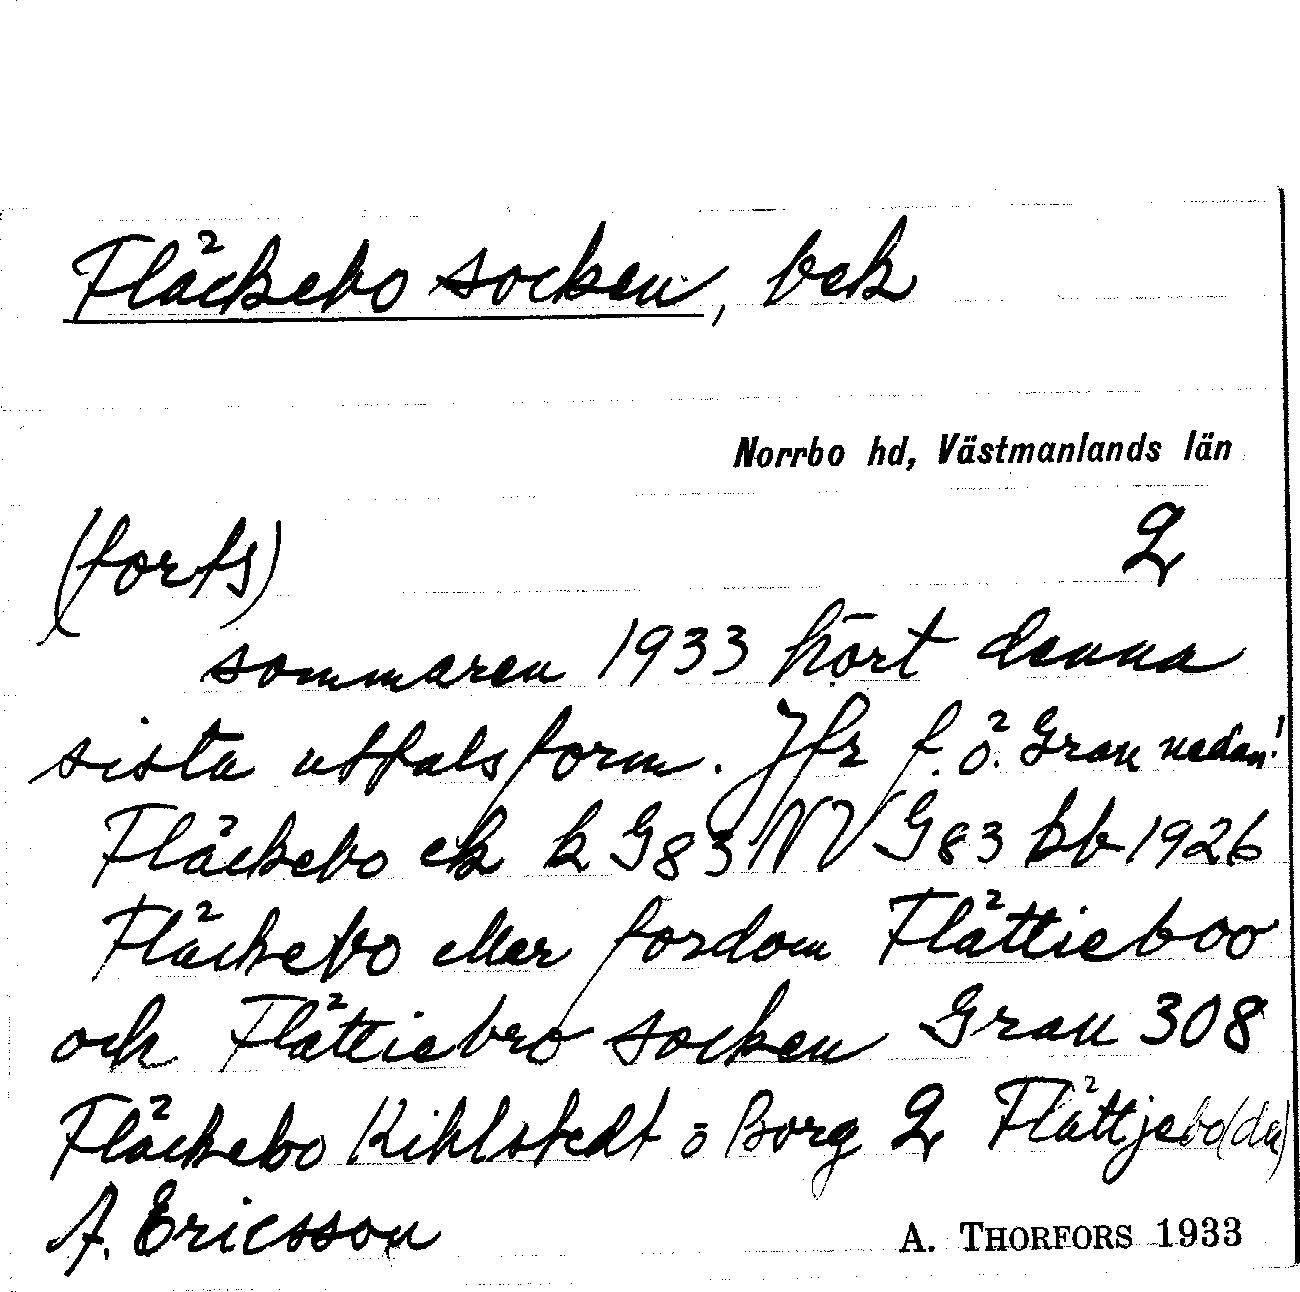 Fläckebo socken, bek
Norrbo hd, Västmanlands län
(forts) 2
sommaren 1933 hört denna
sista uttalsform. Jfr f. ö. Grau nedan!
Fläckebo ek k G83 NV G83 bb 1926
Fläckebo eller fordom Flättieboo
och Flättiebro socken Grau 308
Fläckebo Kihlstedt o Borg 2 Flättjebo (da)
A. Ericsson A. THORFORS 1933